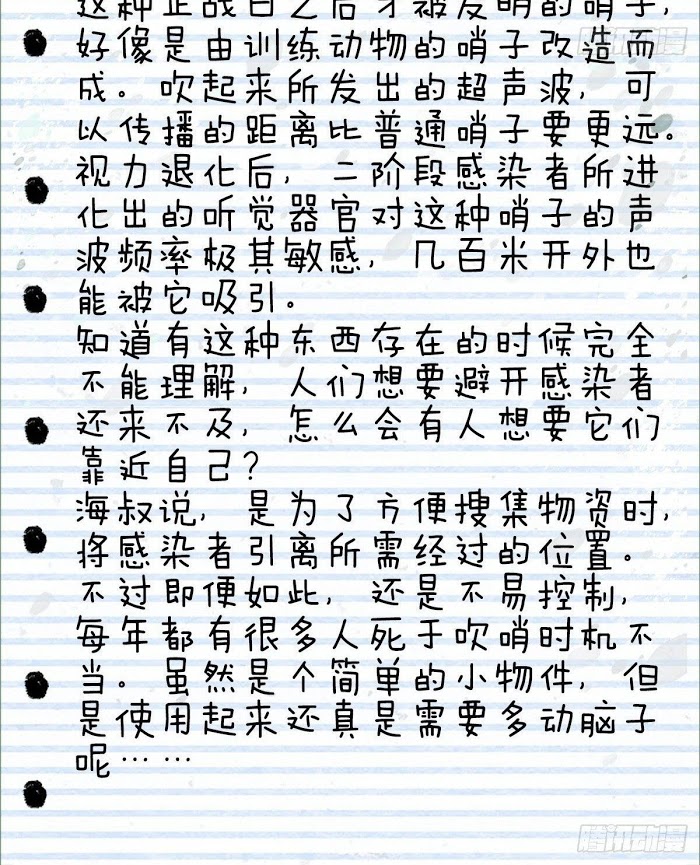 这种是战后之后才被发明的哨子，
好像是由训练动物的哨子改造而
成。吹起来所发出的超声波，可
以传播的距离比普通哨子要更远。
视力退化后，二阶段感染者所进
化出的听觉器官对这种哨子的声
波频率极其敏感，几百米开外也
能被它吸引。
知道有这种东西存在的时候完全
不能理解，人们想要避开感染者
还来不及，怎么会有人想要它们
靠近自己？
海叔说，是为了方便搜集物资时，
将感染者引离所需经过的位置。
不过即便如此，还是不易控制，
每年都有很多人死于吹哨时机不
当。虽然是个简单的小物件，但
是使用起来还真是需要多动脑子
呢……
腾讯动漫
腾讯动漫